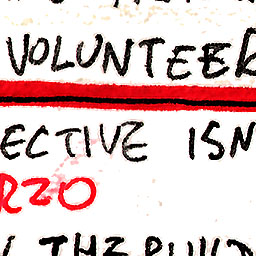 VOLUNTEER
ECTIVE ISN
RZO
THE BUILD